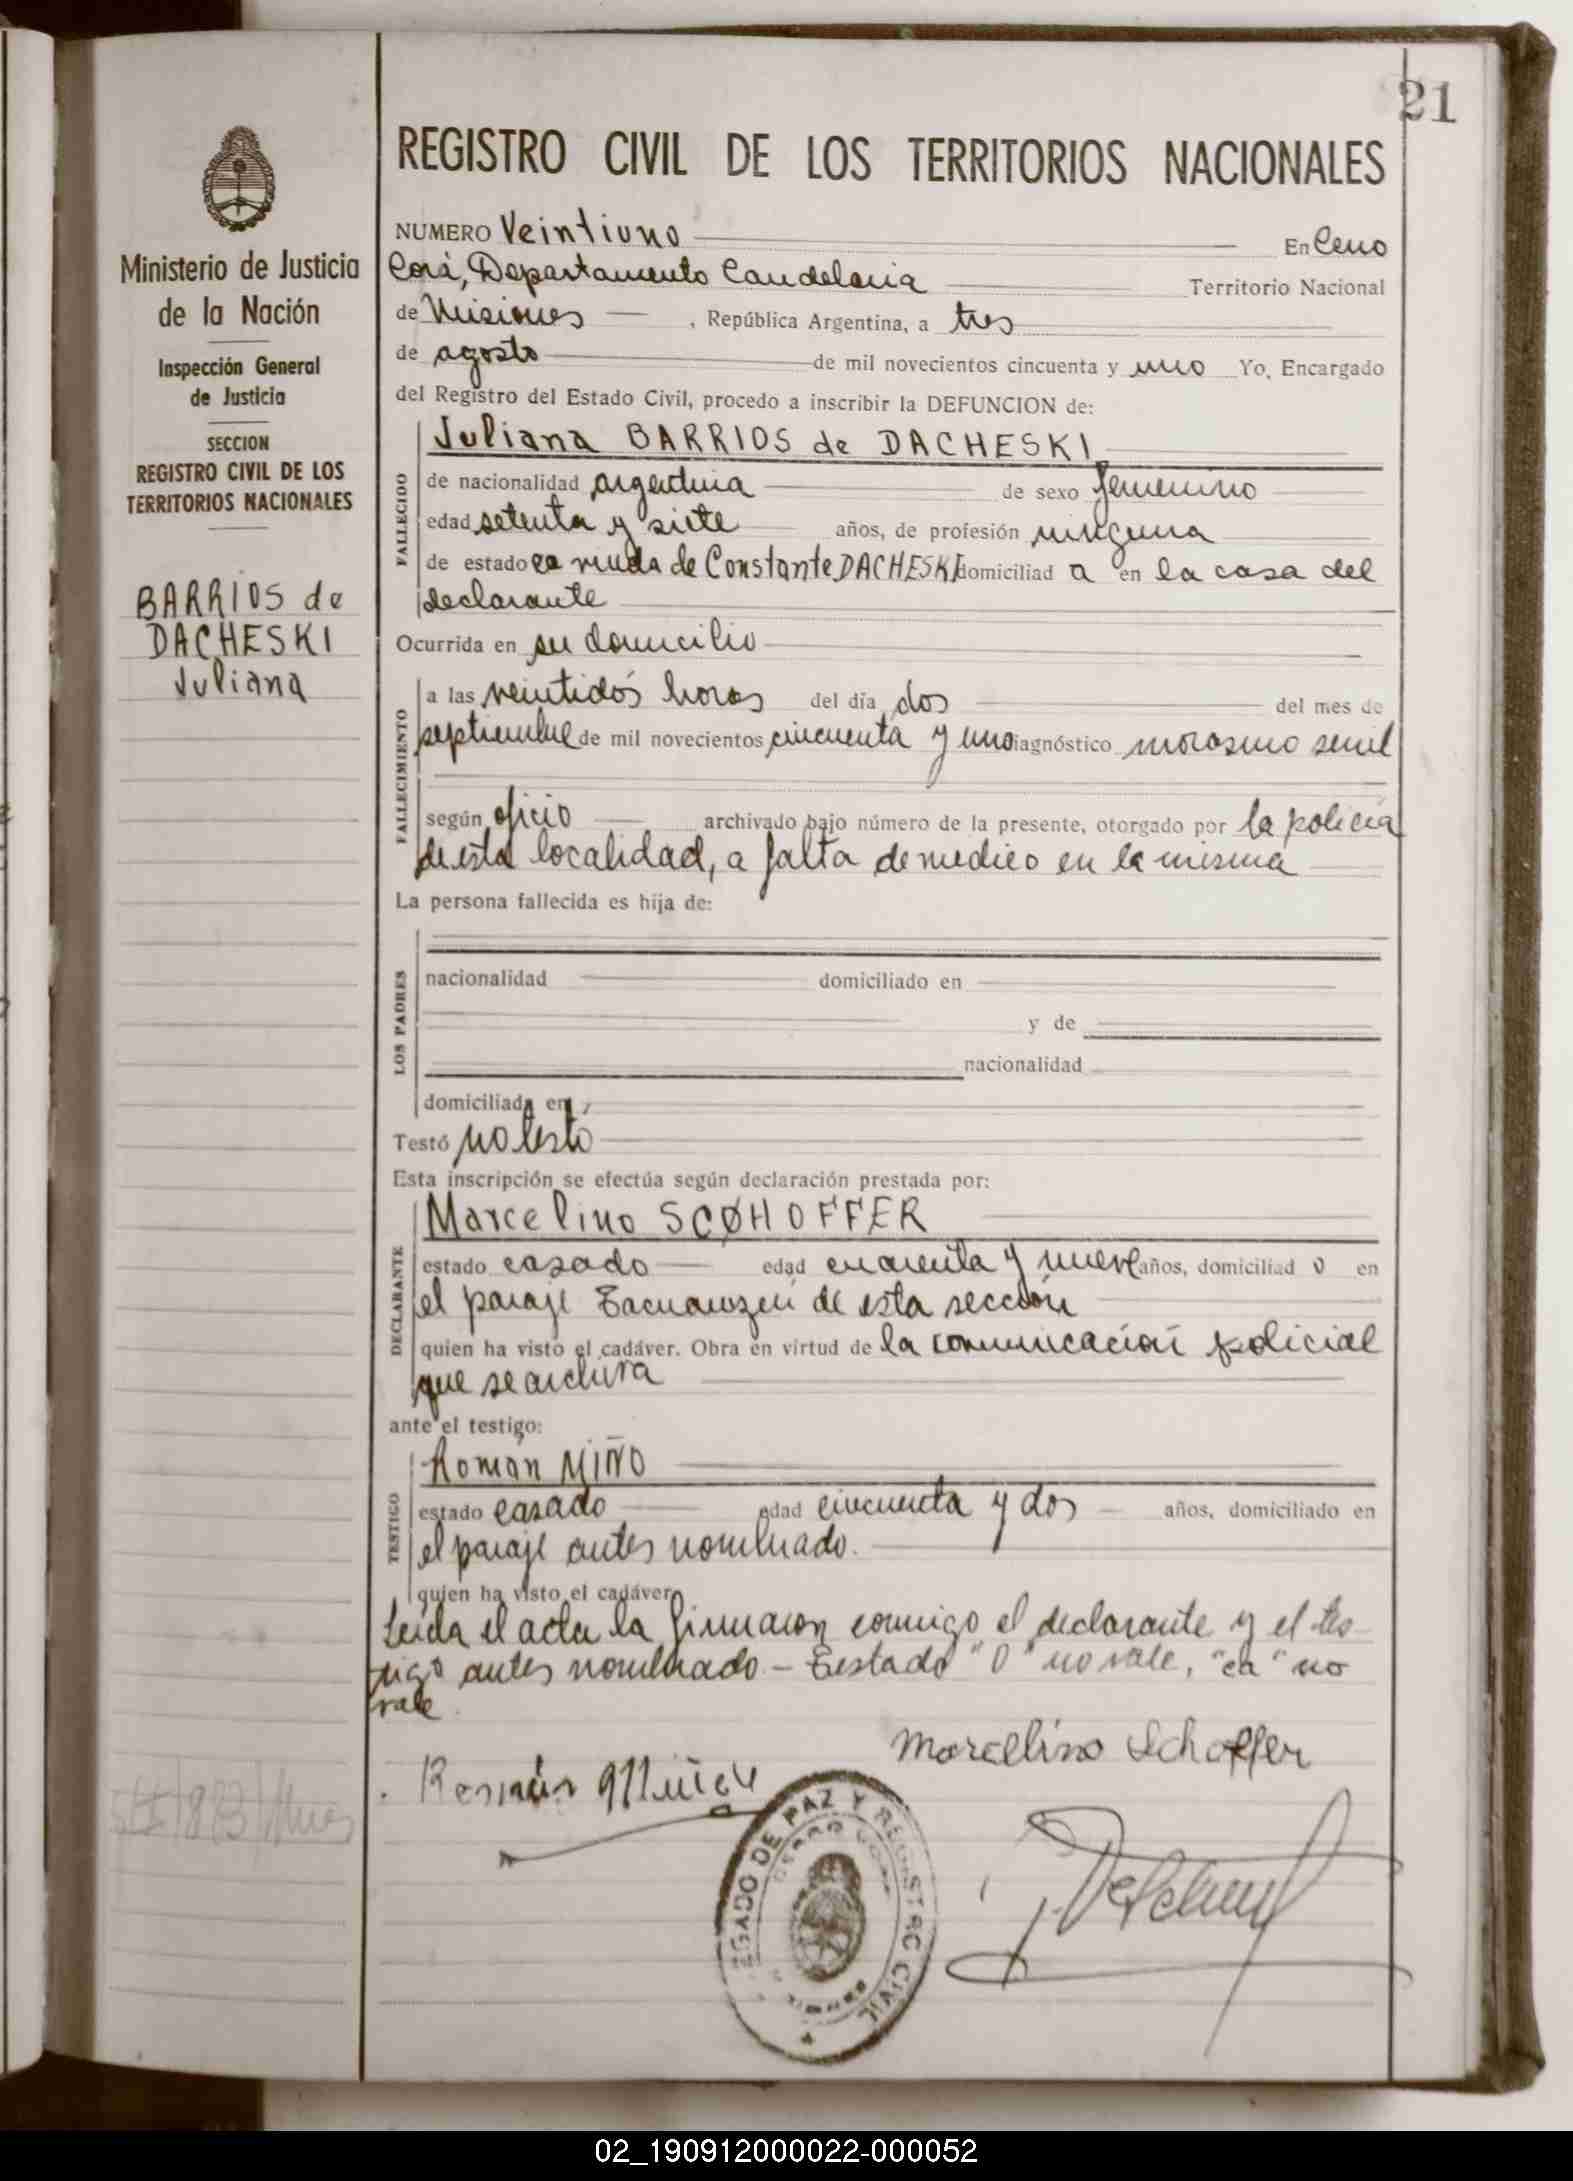 21
REGISTRO CIVIL DE LOS TERRITORIOS NACIONALES
Ministerio de Justicia
de la Nación
Inspección General
de Justicia
SECCION
REGISTRO CIVIL DE LOS
TERRITORIOS NACIONALES
BARRIOS de
DACHESKI
Juliana
NUMERO Veintiuno En Cerro
Corá, Departamento Candelaria Territorio Nacional
de Misiones , República Argentina, a tres
de agosto de mil novecientos cincuenta y uno Yo, Encargado
del Registro del Estado Civil, procedo a inscribir la DEFUNCION de:
FALLECIDO
Juliana BARRIOS de DACHESKI
de nacionalidad argentina de sexo femenino
edad setenta y siete años, de profesión ninguna
de estado ca viuda de Constante DACHESKI domiciliad a en la casa del
declarante
Ocurrida en su domicilio
FALLECIMIENTO
a las veintidós horas del día dos del mes de
septiembre de mil novecientos cincuenta y uno diagnóstico morasmo senil
según oficio archivado bajo número de la presente, otorgado por la policía
de esta localidad, a falta de medico en la misma
La persona fallecida es hija de:
LOS PADRES
nacionalidad domiciliado en
y de
nacionalidad
domiciliada en
Testó no testó
Esta inscripción se efectúa según declaración prestada por:
DECLARANTE
Marcelino SCOHOFFER
estado casado edad cuarenta y nueve años, domiciliad o en
el paraje Tacuaruzú de esta sección
quien ha visto el cadáver. Obra en virtud de la comunicación policial
que se archiva
ante el testigo:
TESTIGO
Román MIÑO
estado casado edad cincuenta y dos años, domiciliado en
el paraje antes nombrado.
quien ha visto el cadáver
Leída el acta la firmaron conmigo el declarante y el tes-
tigo antes nombrado – Testado "O" no vale, "ca" no
vale
Marcelino Schoffer
Román Miño
EGADO DE PAZ Y REGISTRO CIVIL
02_190912000022-000052